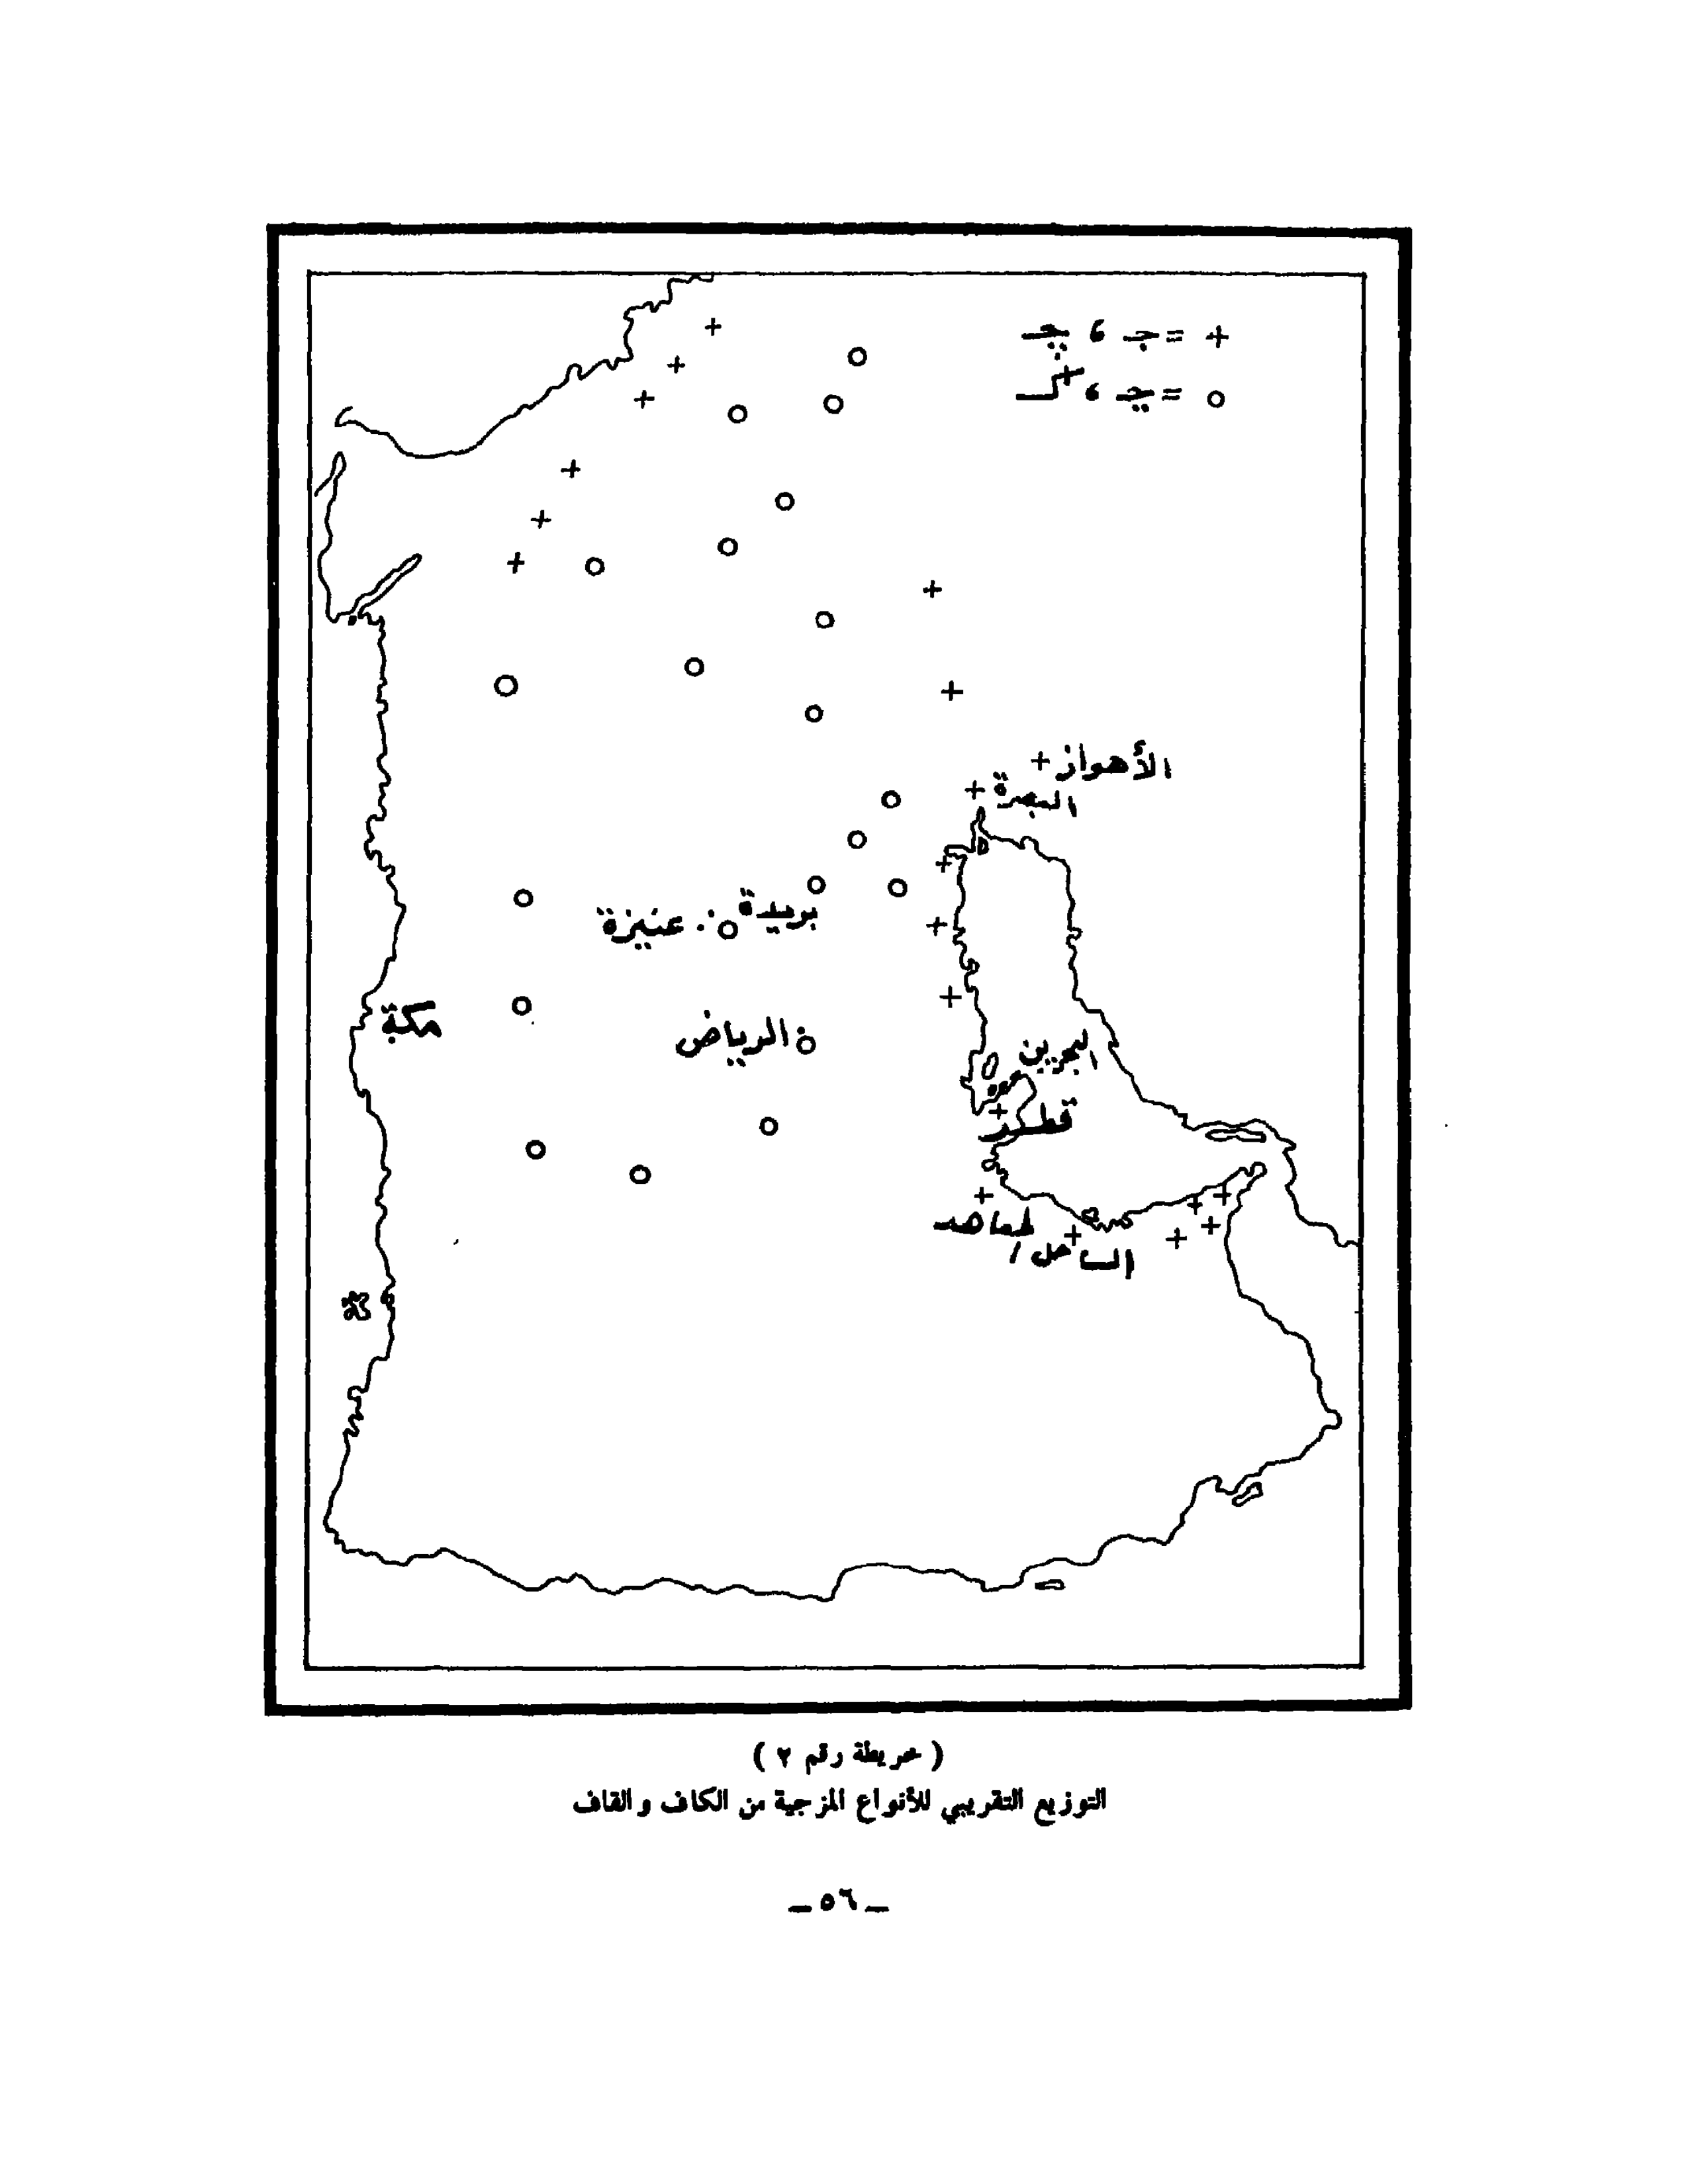 + = جـ ، چـ
الأهواز
البصرة
بريدة
عنيزة
مكة
الرياض
البحرين
قطر
الساحل
( خريطة رقم ٢ )
التوزيع التقريبي للأنواع المزجية من الكاف والقاف
ــ ٥٦ ــ